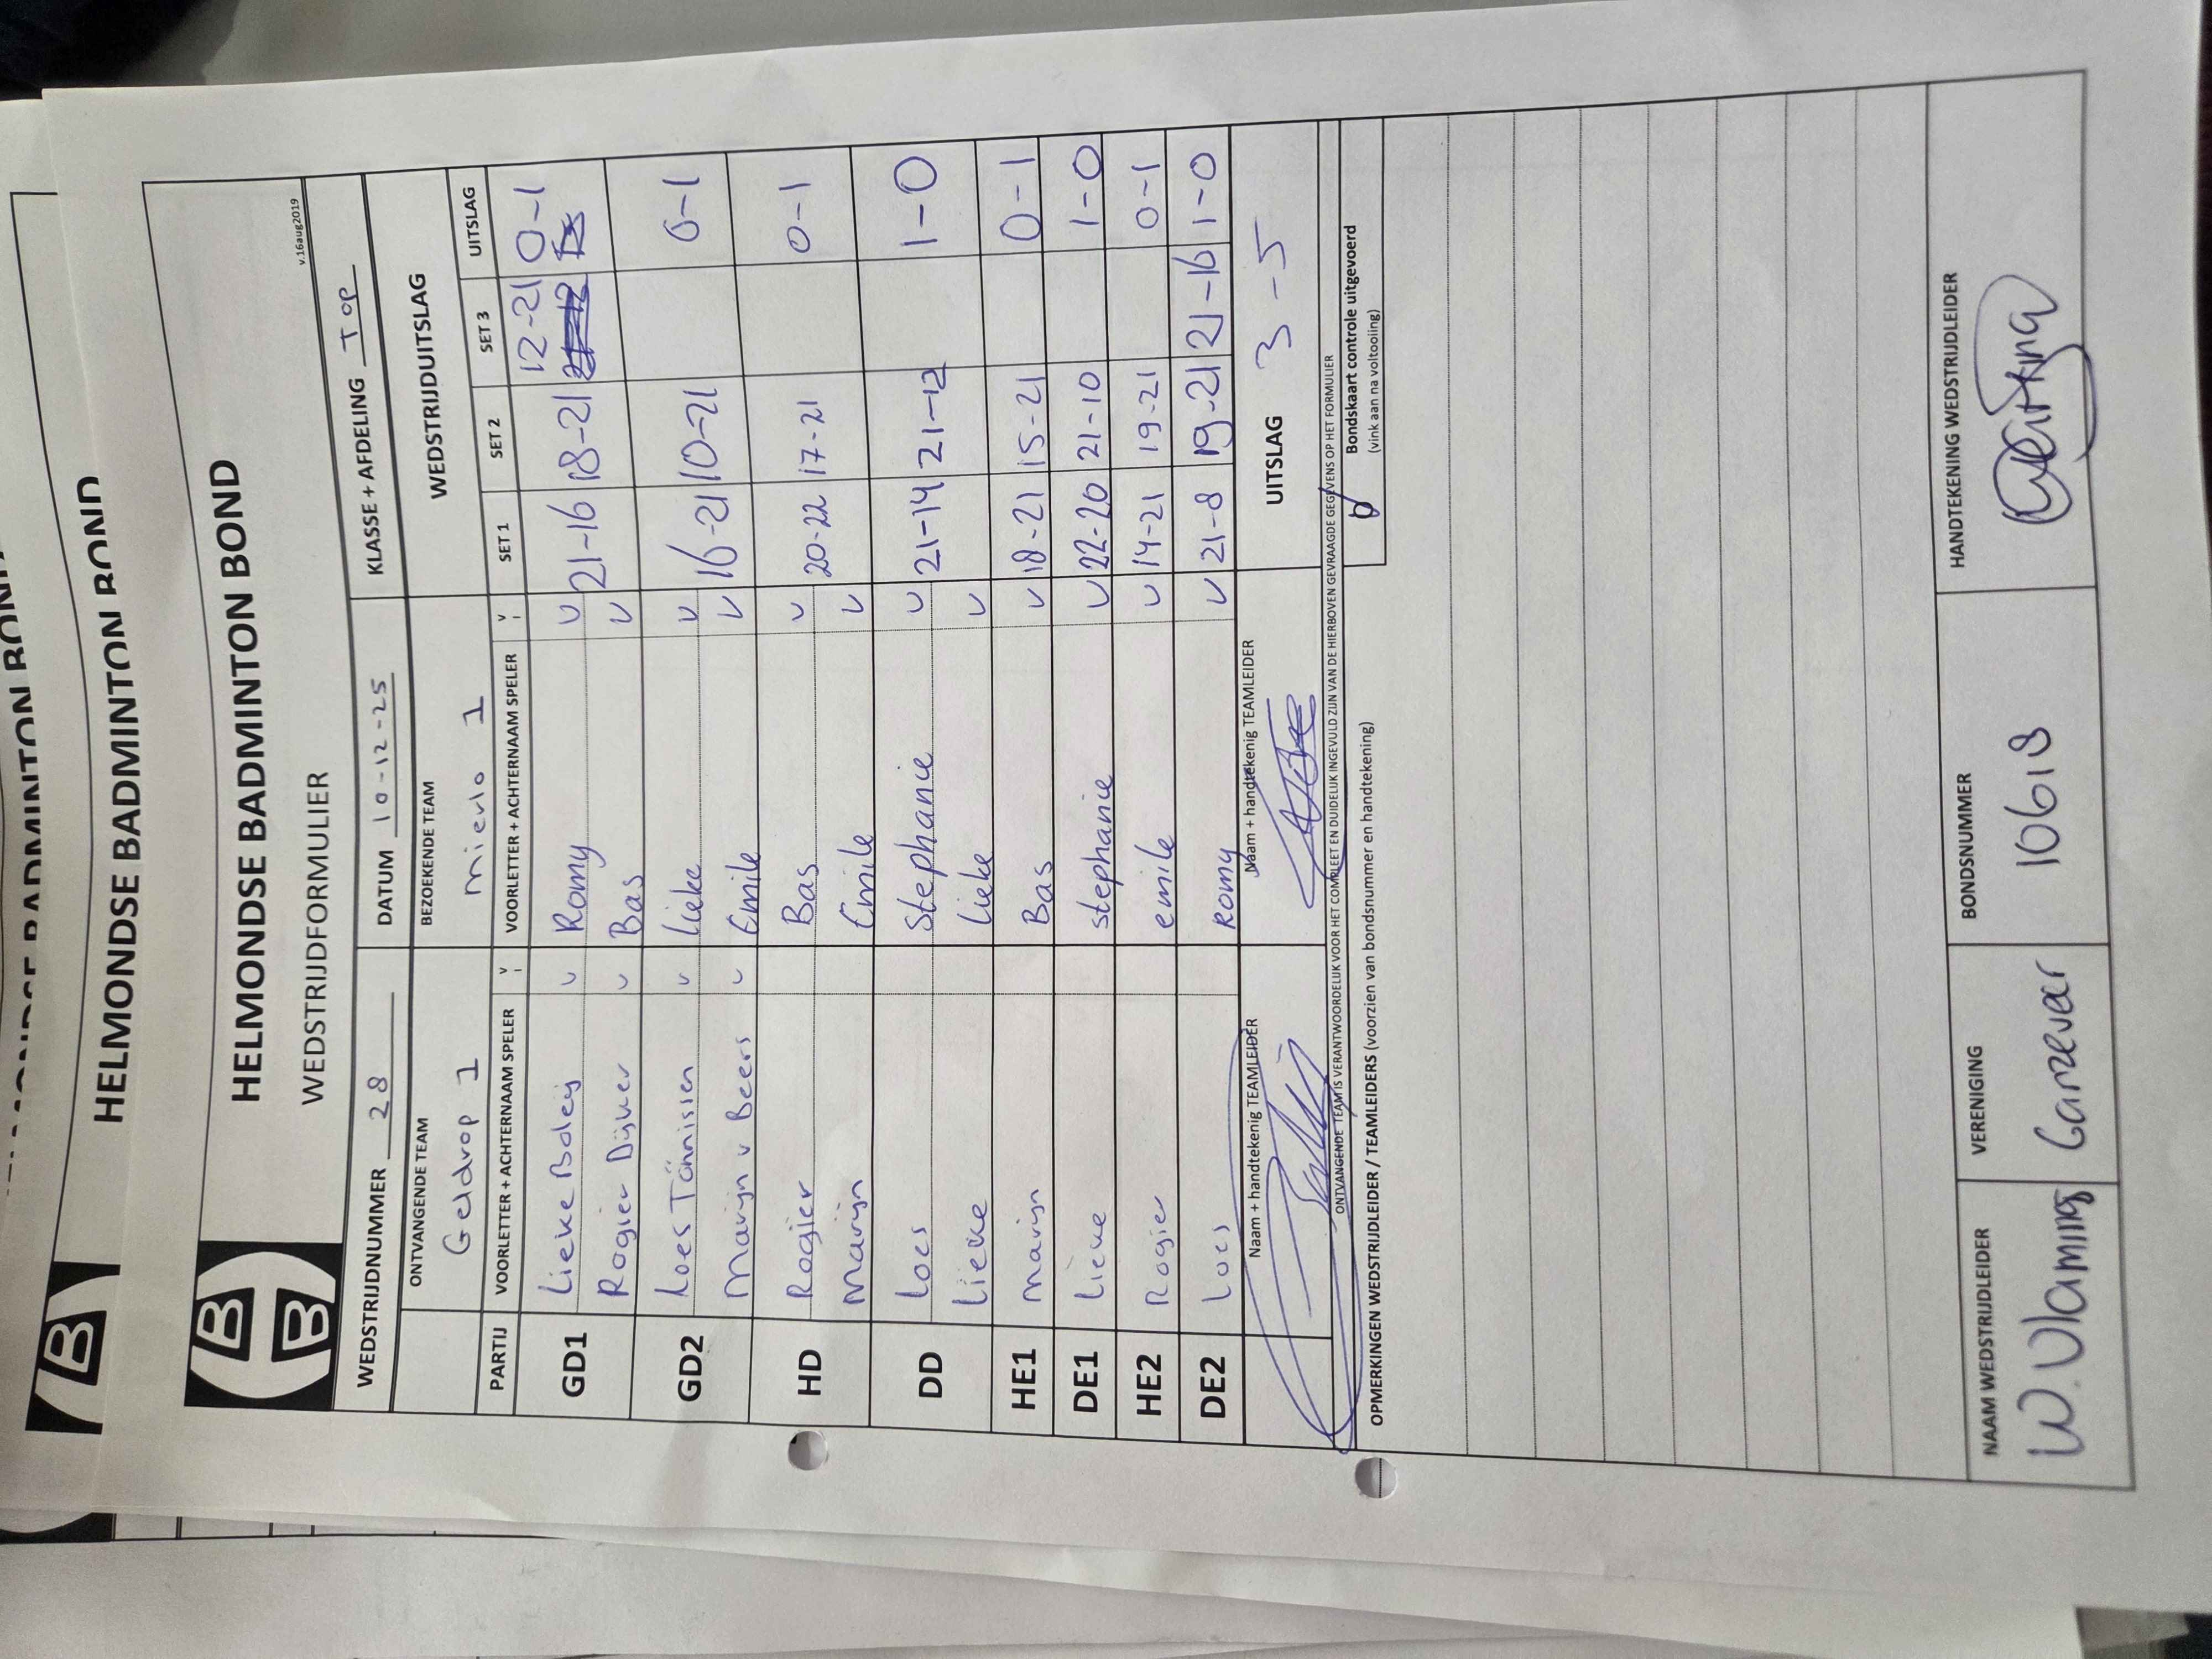 HELMONDSE BADMINTON BOND
HELMONDSE BADMINTON BOND
B
HELMONDSE BADMINTON BOND
WEDSTRIJDFORMULIER
v.16aug2019
B B
WEDSTRIJDNUMMER 28 DATUM 10-12-25 KLASSE + AFDELING Top
ONTVANGENDE TEAM BEZOEKENDE TEAM WEDSTRIJDUITSLAG
Geldrop 1 Mierlo 1
PARTIJ VOORLETTER + ACHTERNAAM SPELER V VOORLETTER + ACHTERNAAM SPELER V SET 1 SET 2 SET 3 UITSLAG
GD1 Lieke Boleij v Romy v 21-16 18-21 12-21 0-1
Rogier v Bas v
GD2 Loes Tönnissen v Lieke v 16-21 10-21 0-1
Marijn v Beers v Emile v
HD Rogier Bas v 20-22 17-21 0-1
Marijn Emile v
DD Loes Stephanie v 21-14 21-12 1-0
Lieke Lieke v
HE1 Marijn Bas v 18-21 15-21 0-1
DE1 Lieke stephanie v 22-20 21-10 1-0
HE2 Rogier emile v 14-21 19-21 0-1
DE2 Loes Romy v 21-8 19-21 21-16 1-0
Naam + handtekenig TEAMLEIDER Naam + handtekenig TEAMLEIDER UITSLAG 3-5
ONTVANGENDE TEAM IS VERANTWOORDELIJK VOOR HET COMPLEET EN DUIDELIJK INGEVULD ZIJN VAN DE HIERBOVEN GEVRAAGDE GEGEVENS OP HET FORMULIER
OPMERKINGEN WEDSTRIJDLEIDER / TEAMLEIDERS (voorzien van bondsnummer en handtekening)
Bondskaart controle uitgevoerd
(vink aan na voltooiing)
NAAM WEDSTRIJDLEIDER VERENIGING BONDSNUMMER HANDTEKENING WEDSTRIJDLEIDER
W. Vlaming Ganzeveer 10618